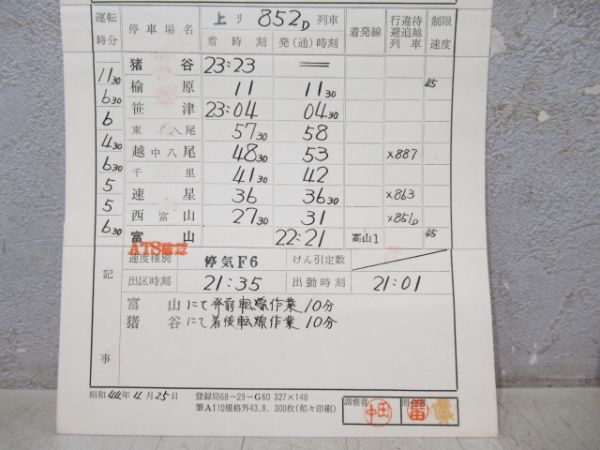 運転時分 停車場名 上リ 852D 列車 着発線 行違待避追越列車 制限速度
着時刻 発(通)時刻
猪谷 23:23 =
11 30
楡原 11 11 30 45
6 30
笹津 23:04 04 30
6
東八尾 57 30 58
4 30
越中八尾 48 30 53 ×887
6 30
千里 41 30 42
5
速星 36 36 30 ×863
5
西富山 27 30 31 ×856D
6 30
富山 22:21 高山1 45
速度種別 停気F6 けん引定数
記事
出区時刻 21:35 出勤時刻 21:01
富山にて発前転線作業10分
猪谷にて着後転線作業10分
昭和44年11月25日 登録局68-29-G60 327×148
筆A110規格外43.8. 300枚(郁々印刷)
調整者 中田